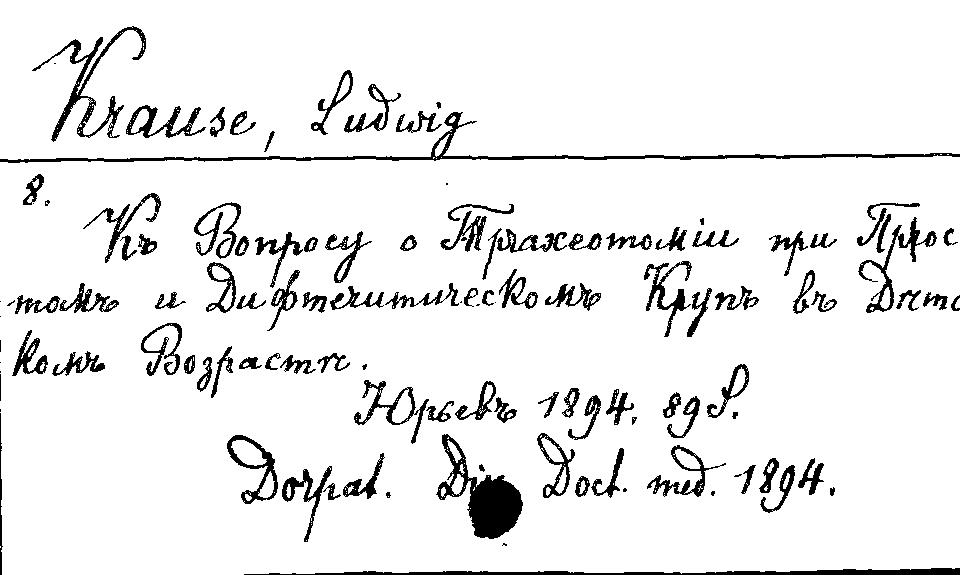 Krause, Ludwig
8.
Къ Вопросу о Трахеотомiи при Прос
томъ и Дифтеритическомъ Крупѣ въ Дѣтс
комъ Возрастѣ.
Юрьевъ 1894. 89 S.
Dorpat. Dis Doct. med. 1894.